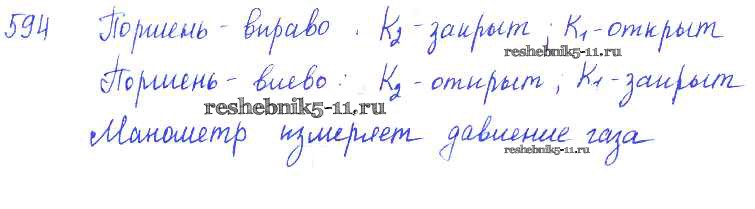 594 Поршень - вправо : К2 - закрыт ; К1 - открыт
reshebnik5-11.ru
Поршень - влево : К2 - открыт ; К1 - закрыт
reshebnik5-11.ru
Манометр измеряет давление газа
reshebnik5-11.ru